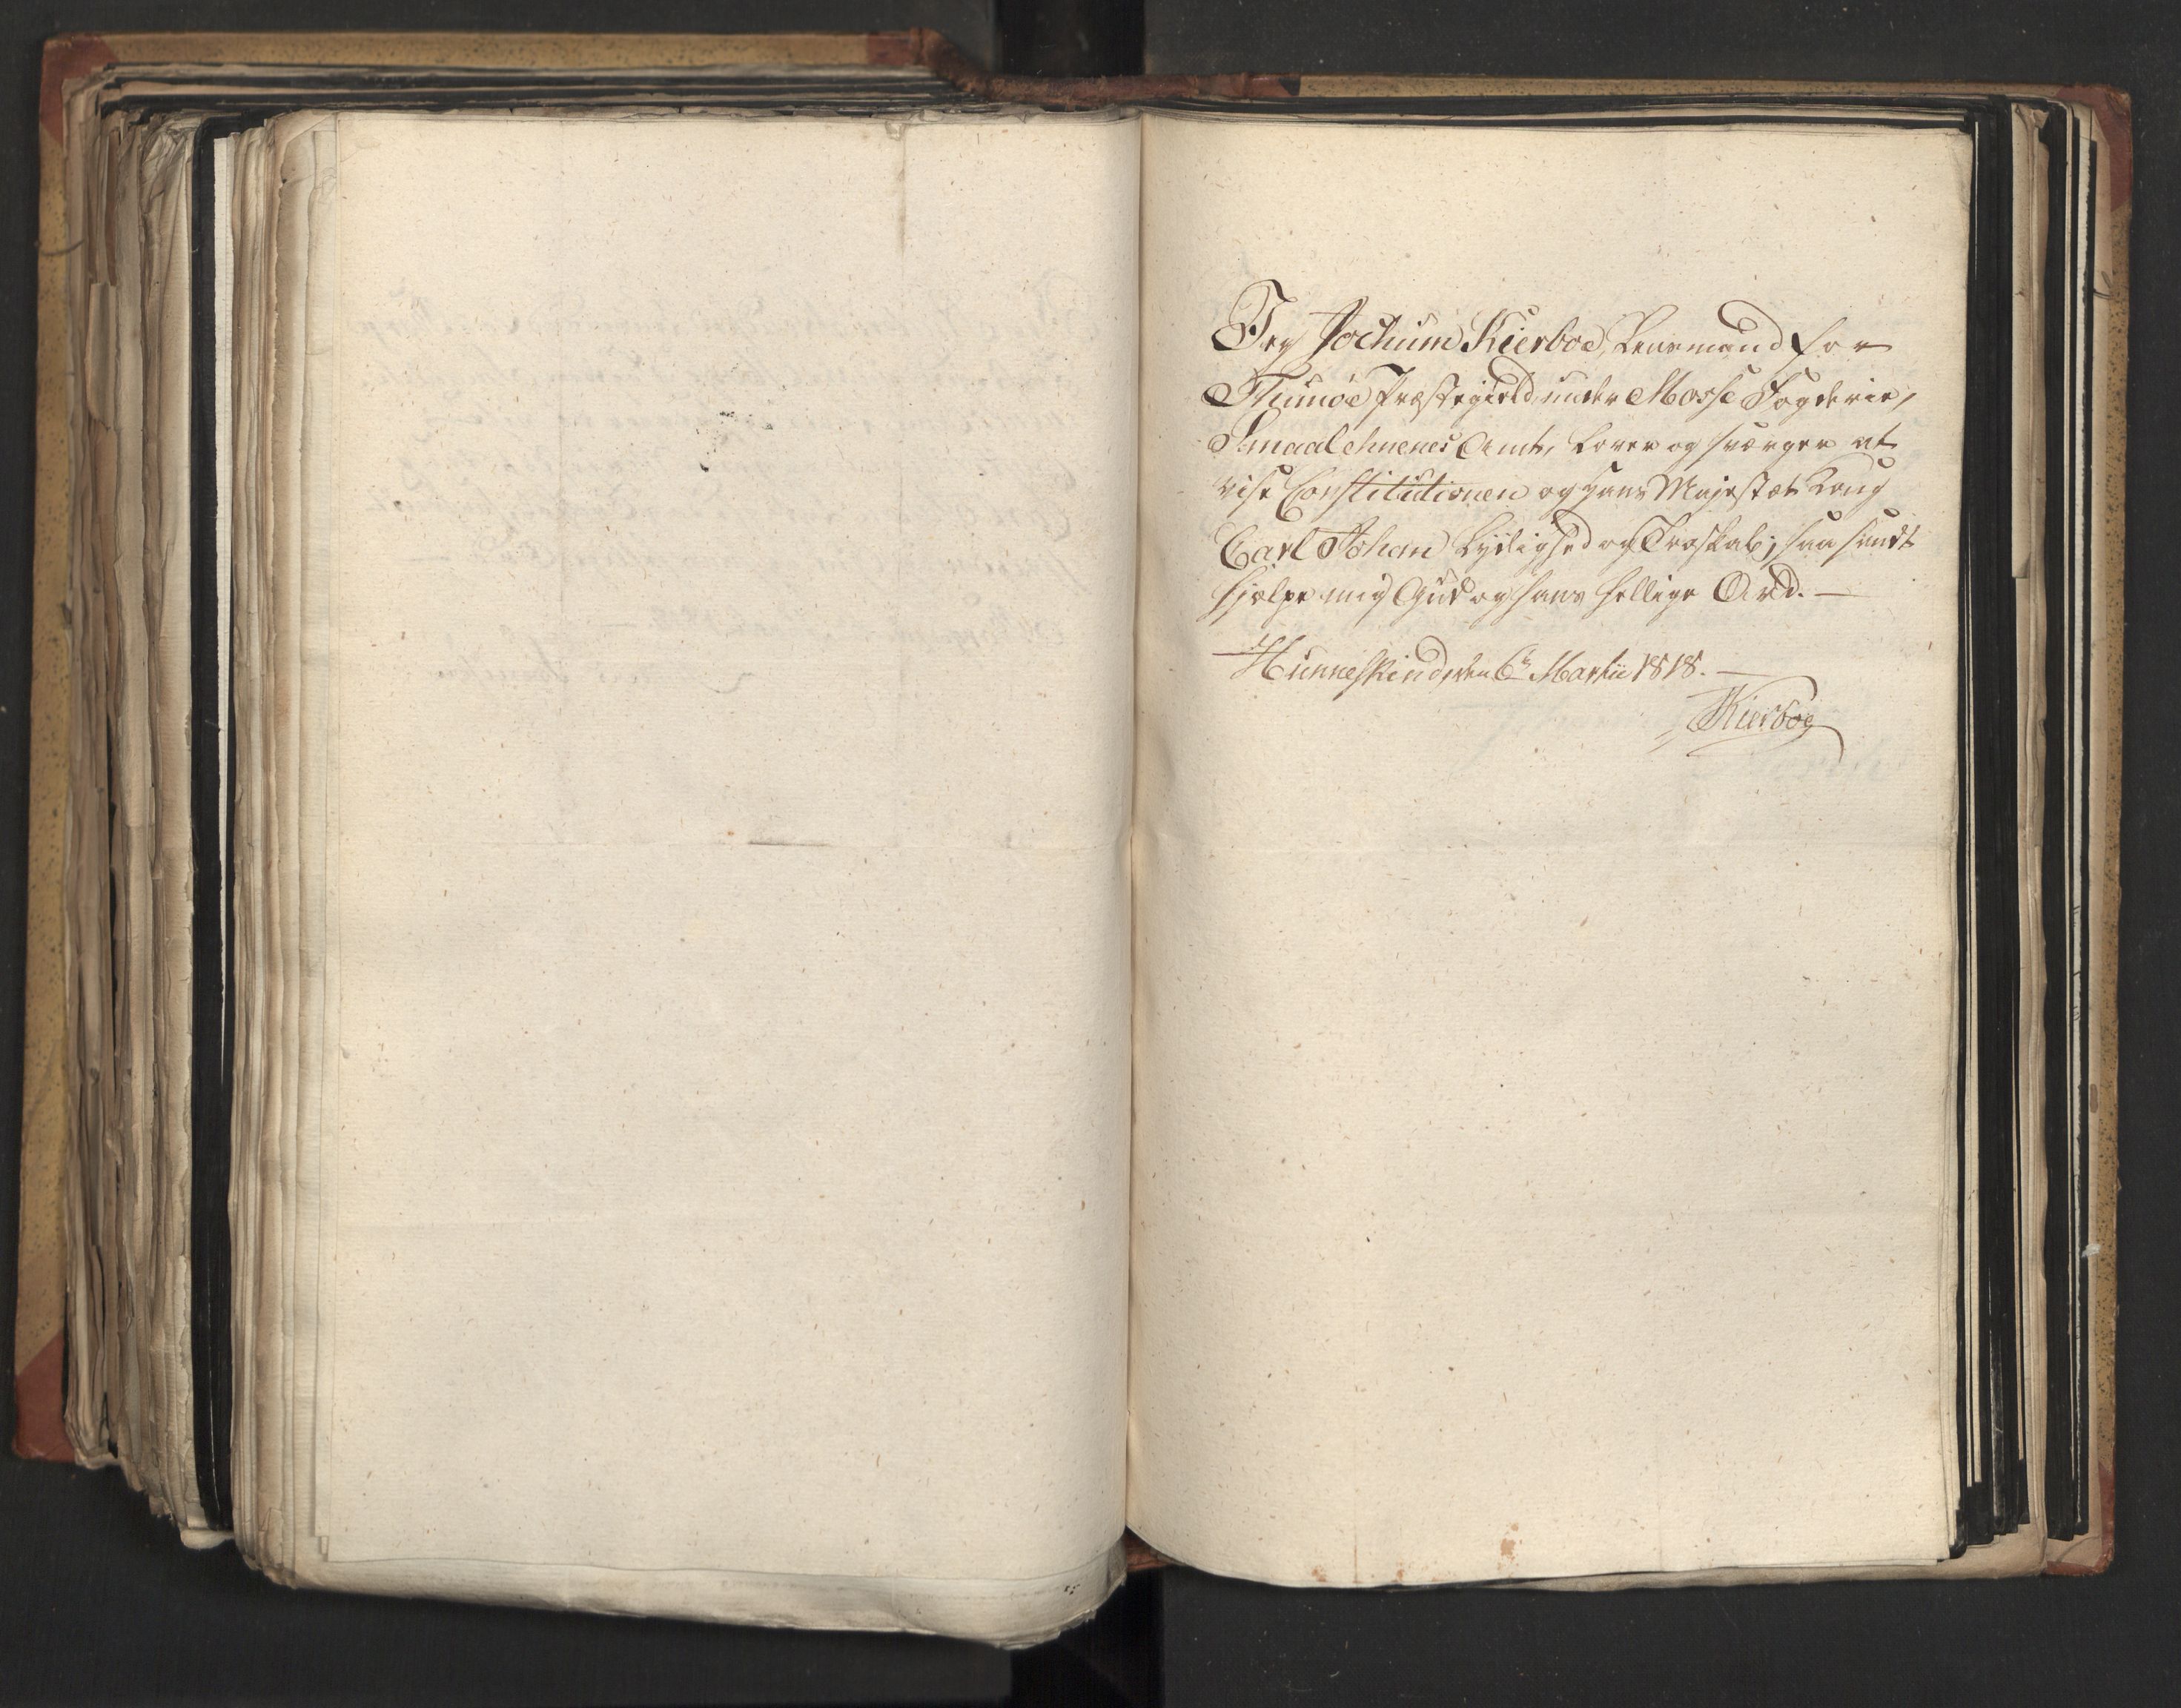 Jeg Jochum Kierboe, Lensmand for
Thunøe Præstegield under Mosse Fogderie,
Smaalehnenes Amt, Lover og sværger at
vise Constitutionen og Hans Majestæt Kong
Carl Johan Lydighed og Troskab; saa sandt
hjelpe mig Gud og hans hellige Ord. —
Hunneskind, den 6te Martii 1818. —
Kierboe